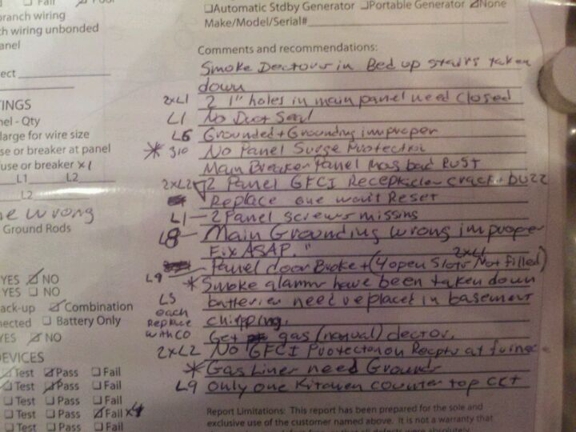 ☐Automatic Stdby Generator ☐Portable Generator ☑None
Make/Model/Serial#
branch wiring
ch wiring unbonded
panel
Comments and recommendations:
Smoke Dectours in Bed up stairs taken
down
2xL1 2 1" holes in main panel need closed
L1 No Duct Seal
L5 Grounded + Grounding improper
* S10 No Panel Surge Protection
Main Breaker Panel has bad Rust
2xL2 2 Panel GFCI Recepticles crack + buzz
Replace one won't Reset
L1 - 2 Panel screws missing
L8 - Main Grounding wrong improper
Fix ASAP. "
2xL1
L9 - Panel door Broke + (4 open Slots Not filled)
* Smoke alarms have been taken down
L5 batteries need replaced in basement
each chirpping.
Replace with CO Get gas (manual) dector.
2xL2 No GFCI Protection Recpts at furnace
* Gas Liner need Ground
L9 only one Kitchen counter top CKT
Report Limitations: This report has been prepared for the sole and
exclusive use of the customer named above. It is not a warranty
ect
TINGS
nel - Qty
large for wire size
use or breaker at panel
use or breaker x1
L1 L2
L2
e wrong
Ground Rods
YES ☑ NO
YES ☐ NO
ack-up ☑ Combination
nected ☐ Battery Only
YES ☑ NO
DEVICES
Test ☑ Pass ☐ Fail
Test ☑ Pass ☐ Fail
☐ Test ☐ Pass ☑ Fail x4
☐ Test ☐ Pass ☐ Fail